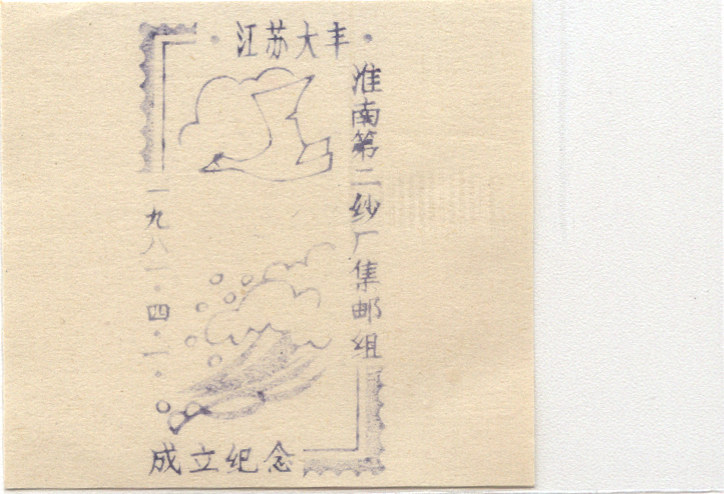 江苏大丰
淮南第二纱厂集邮组
一九八一·四·一·
成立纪念